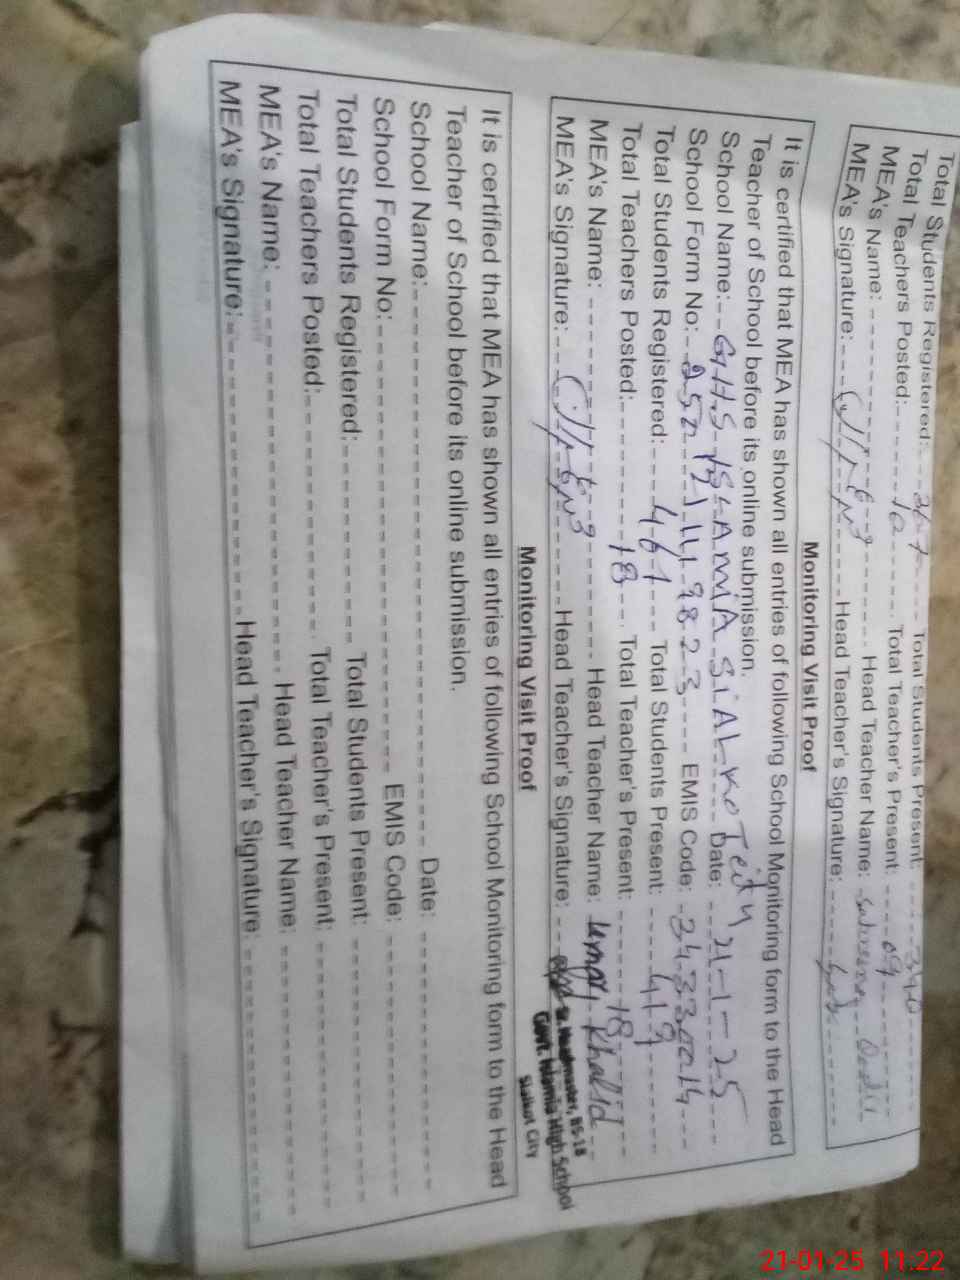 Total Students Registered: Total Students Present: 340
Total Teachers Posted: 12 Total Teacher's Present: 09
MEA's Name: Head Teacher Name:
MEA's Signature: Head Teacher's Signature:
Monitoring Visit Proof
It is certified that MEA has shown all entries of following School Monitoring form to the Head
Teacher of School before its online submission.
School Name: GHS ISLAMIA SIALKOT city Date: 21-1-25
School Form No: EMIS Code: 34330014
Total Students Registered: 461 Total Students Present: 419
Total Teachers Posted: 18 Total Teacher's Present: 18
MEA's Name: Head Teacher Name: Khalid
MEA's Signature: Head Teacher's Signature:
Sr. Headmaster, BS-18
Govt. Islamia High School
Sialkot City
Monitoring Visit Proof
It is certified that MEA has shown all entries of following School Monitoring form to the Head
Teacher of School before its online submission.
School Name: Date:
School Form No: EMIS Code:
Total Students Registered: Total Students Present:
Total Teachers Posted: Total Teacher's Present:
MEA's Name: Head Teacher Name:
MEA's Signature: Head Teacher's Signature:
21-01-25 11:22